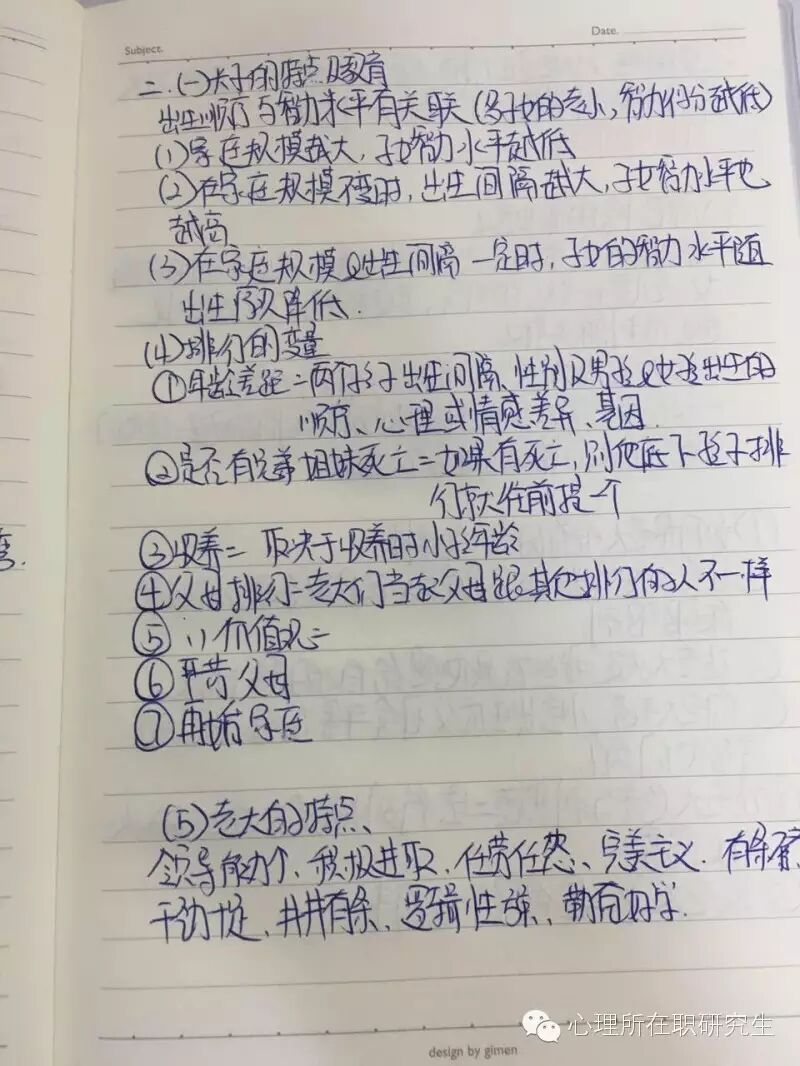 Subject.
Date.
二.(一)长子的特点及教育
出生顺序与智力水平有关联(多子女的老小,智力得分越低)
(1)家庭规模越大,子女智力水平越低
(2)在家庭规模不变时,出生间隔越大,子女智力水平也
越高
(3)在家庭规模和出生间隔一定时,子女的智力水平随
出生序次降低.
(4)排行的变量
①年龄差距=两个孩子出生间隔、性别及男孩和女孩出生的
顺序、心理或情感差异、基因
②是否有兄弟姐妹死亡=如果有死亡,则他底下孩子排
行就往前提一个
③收养=取决于收养时小孩年龄
④父母排行=老大们当起父母跟其他排行的人不一样
⑤ 〃价值观=
⑥ 父母
⑦再婚家庭
(5)老大的特点、
领导能力个、积极进取、任劳任怨、完美主义.有条理
干劲十足、井井有条、逻辑性强、勤奋好学.
心理所在职研究生
design by gimen